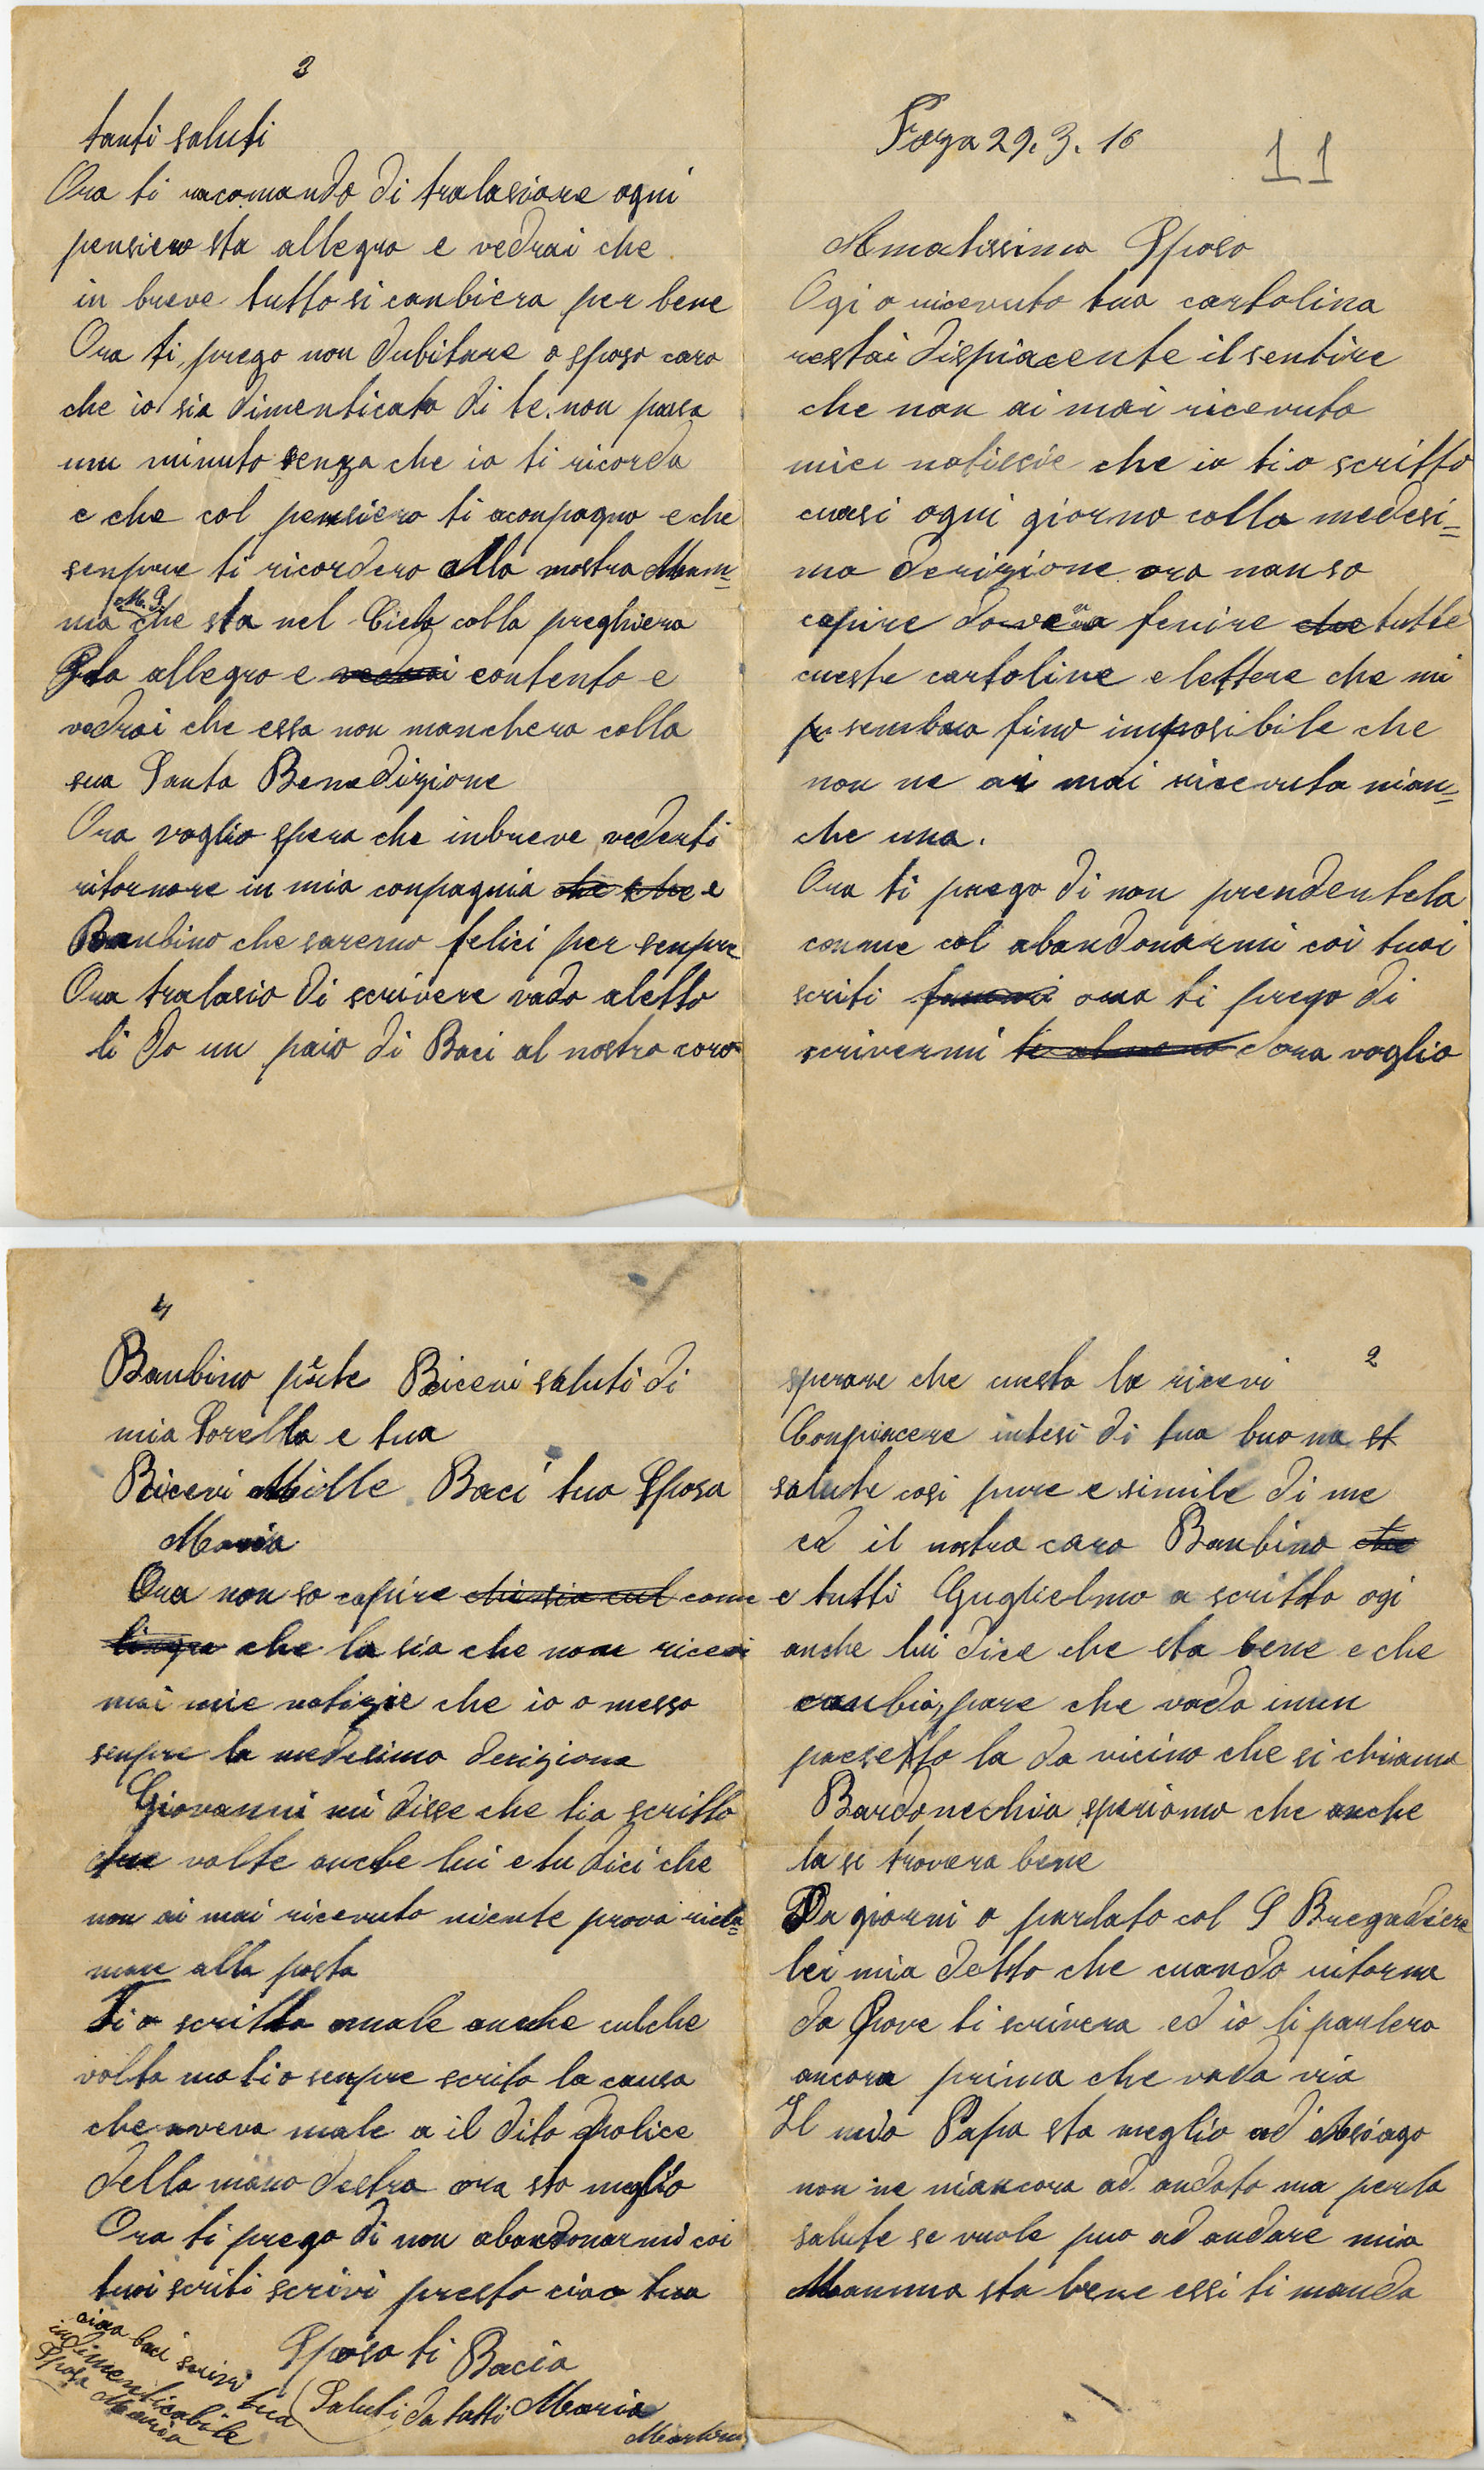 Foza 29. 3. 16
11
Amatissimo Sposo
Ogi o ricevuto tua cartolina
restai dispiacente il sentire
che non ai mai ricevuto
miei notissie che io ti o scritto
cuasi ogni giorno colla medesi=
ma derizione ora non so
capire dovera fenire che tutte
cueste cartoline e lettere che mi
sembra fino imposibile che
non ne ai mai ricevuta nian=
che una.
Ora ti prego di non prendertela
conme col abandonarmi coi tuoi
scriti ora ti prego di
scrivermi ti almeno e ora voglio
2
sperare che cuesta la ricevi
Conpiacere intesi di tua buona st
salute cosi pure e simile di me
ed il nostro caro Banbino che
e tutti Guglielmo a scritto ogi
anche lui dice che sta bene e che
canbia, pare che vada inun
paesetto la da vicino che si chiama
Bardonechia speriamo che anche
la si trovera bene
Da giorni o parlato col S Bregadiere
lei mia detto che cuando ritorna
da Rove ti scrivera ed io li parlero
ancora prima che vada via
Il mio Papa sta meglio ad Asiago
non ne niancora ad andato ma perla
salute se vuole puo ad andare mia
Mamma sta bene essi ti manda
3
tanti saluti
Ora ti racomando di tralasiare ogni
pensiero sta allegro e vedrai che
in breve tutto si canbiera per bene
Ora ti prego non dubitare o sposo caro
che io sia dimenticata di te. non pasa
unu minuto senza che io ti ricorda
e che col pensiero ti aconpagno e che
senpre ti ricordero alla nostra Mam=
M. S.
ma che sta nel Cielo colla preghiera
Sta allegro e vedrai contento e
vedrai che essa non manchera colla
sua Santa Benedizione
Ora voglio spera che inbreve vederti
ritornare in mia conpagnia che che e
Banbino che saremo felici per senpre
Ora tralasio di scrivere vado aletto
li do un paio di Baci al nostro caro
4
Banbino per te Ricevi saluti di
mia Sorella e tua
Ricevi Mille Baci tua Sposa
Maria
Ora non so capire che sia cul come
che la sia che none ricevi
mai mie notizie che io o messo
senpre la medesima derizione
Giovanni mi disse che tia scritto
due volte anche lui e tu dici che
non ai mai ricevuto niente prova recla=
mare alla posta
Ti o scritto male anche culche
volta ma ti o senpre scrito la causa
che aveva male a il dito police
della mano destra ora sto meglio
Ora ti prego di non abandonarmi coi
tuoi scriti scrivi presto ciao tua
Sposa ti Bacia
Maria
Martini
Saluti da tutti
ciao baci scrivi tua
indimenticabile
Sposa Maria